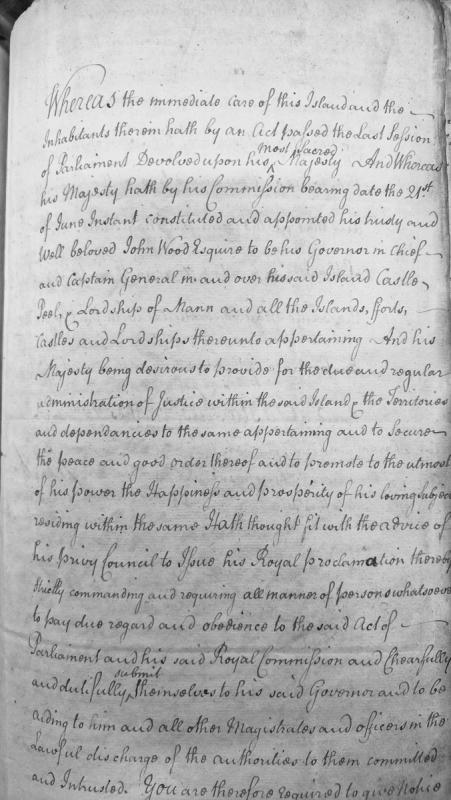 Whereas the immediate care of this Island and the
Inhabitants therein hath by an Act passed the Last Session
of Parliament Devolved upon his most sacred Majesty And Whereas
his Majesty hath by his Commission bearing date the 21st
of June Instant constituted and appointed his trusty and
Well beloved John Wood Esquire to be his Governor in Chief
and Captain General in and over his said Island Castle
Peel, & Lordship of Mann and all the Islands, fforts,
Castles and Lordships thereunto appertaining And his
Majesty being desirous to provide for the due and regular
administration of Justice within the said Island & the Territories
and dependancies to the same appertaining and to Secure
the peace and good order thereof and to promote to the utmost
of his power the Happiness and prosperity of his loving Subjects
residing within the same Hath thought fit with the advice of
his privy Council to Issue his Royal proclamation thereby
strictly commanding and requiring all manner of persons whatsoever
to pay due regard and obedience to the said Act of
Parliament and his said Royal Commission and Chearfully
and dutifully submit themselves to his said Governor and to be
aiding to him and all other Magistrates and officers in the
Lawful discharge of the authorities to them committed
and Intrusted. You are therefore required to give Notice